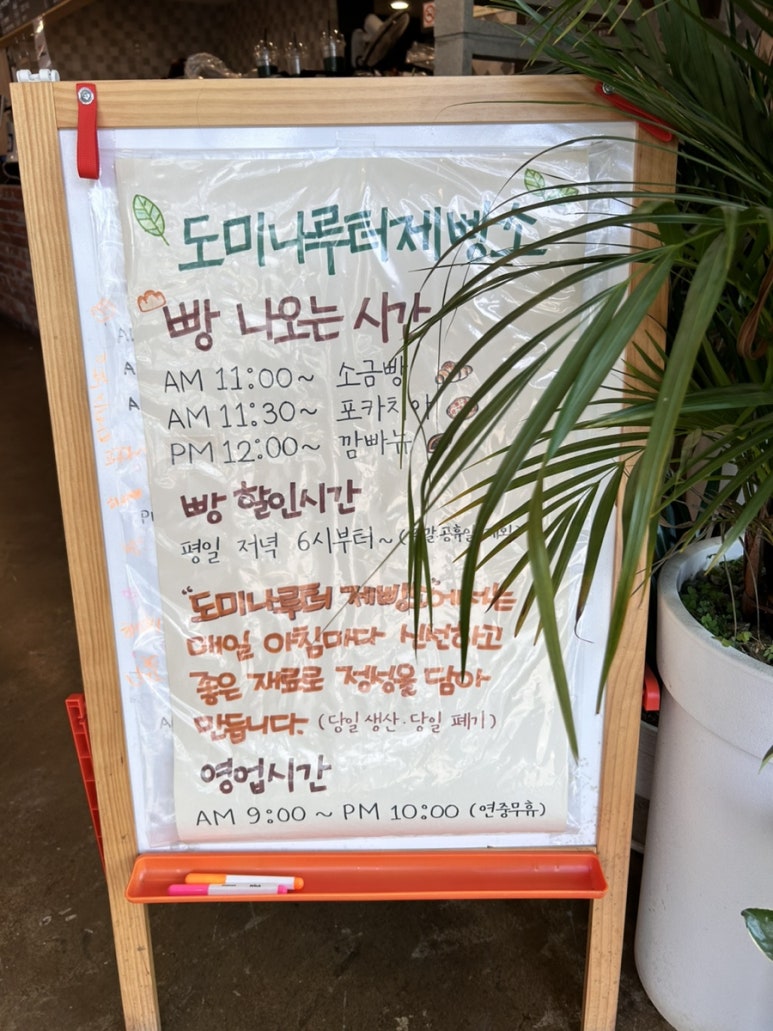 도미나루터제빵소
빵 나오는 시간
AM 11:00~ 소금빵
AM 11:30~ 포카치아
PM 12:00~ 깜빠뉴
빵 할인시간
평일 저녁 6시부터~ (주말.공휴일 제외)
"도미나루터 제빵소"에서는
매일 아침마다 신선하고
좋은 재료로 정성을 담아
만듭니다. (당일 생산. 당일 폐기)
영업시간
AM 9:00 ~ PM 10:00 (연중무휴)